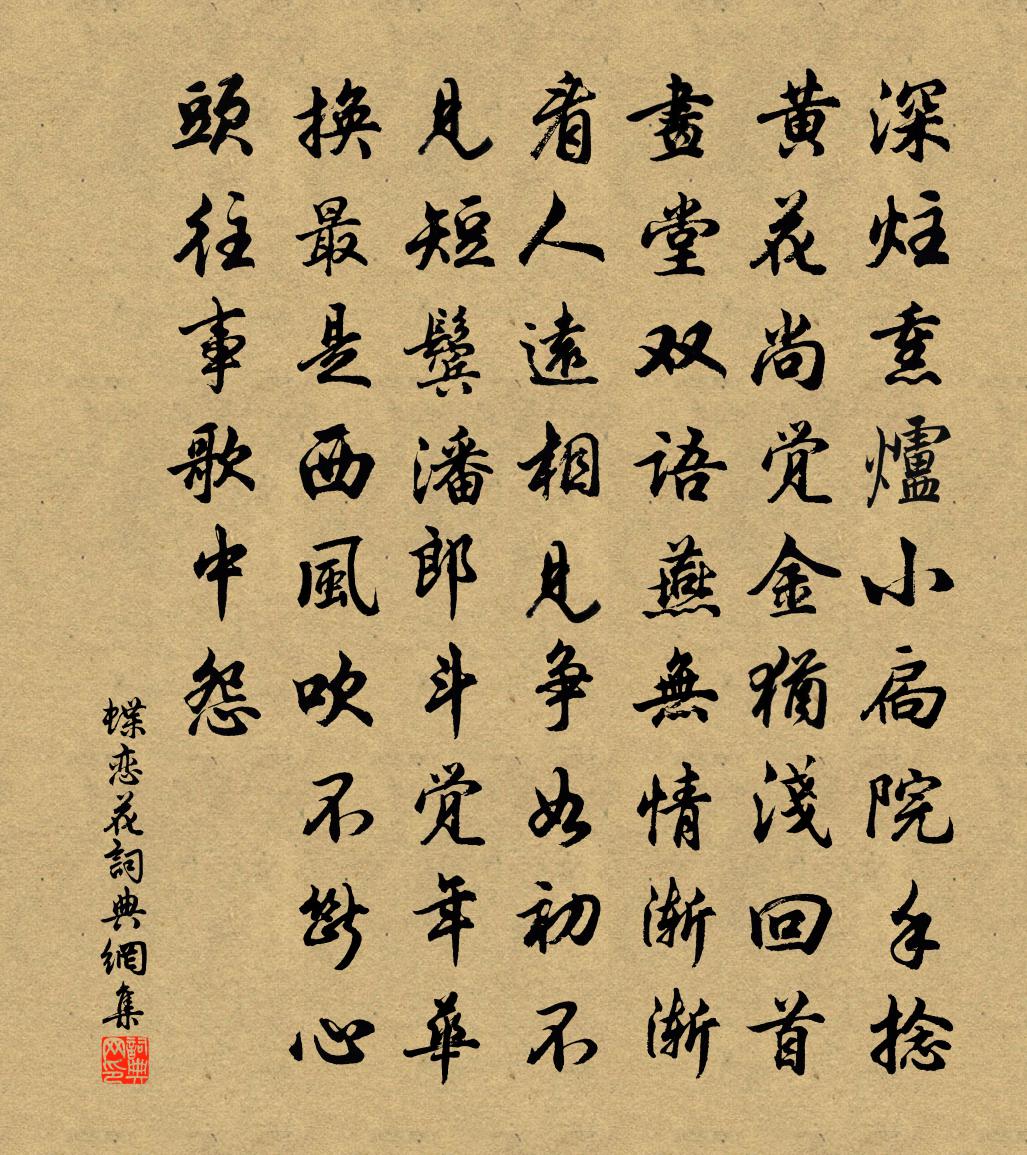 深炷熏爐小扃院手捻
黄花尚觉金猶淺回首
畫堂双語燕無情渐渐
看人遠相見争如初不
見短鬓潘郎斗觉年華
换最是西風吹不断心
頭往事歌中怨
蝶恋花詞典網集
詞典网印